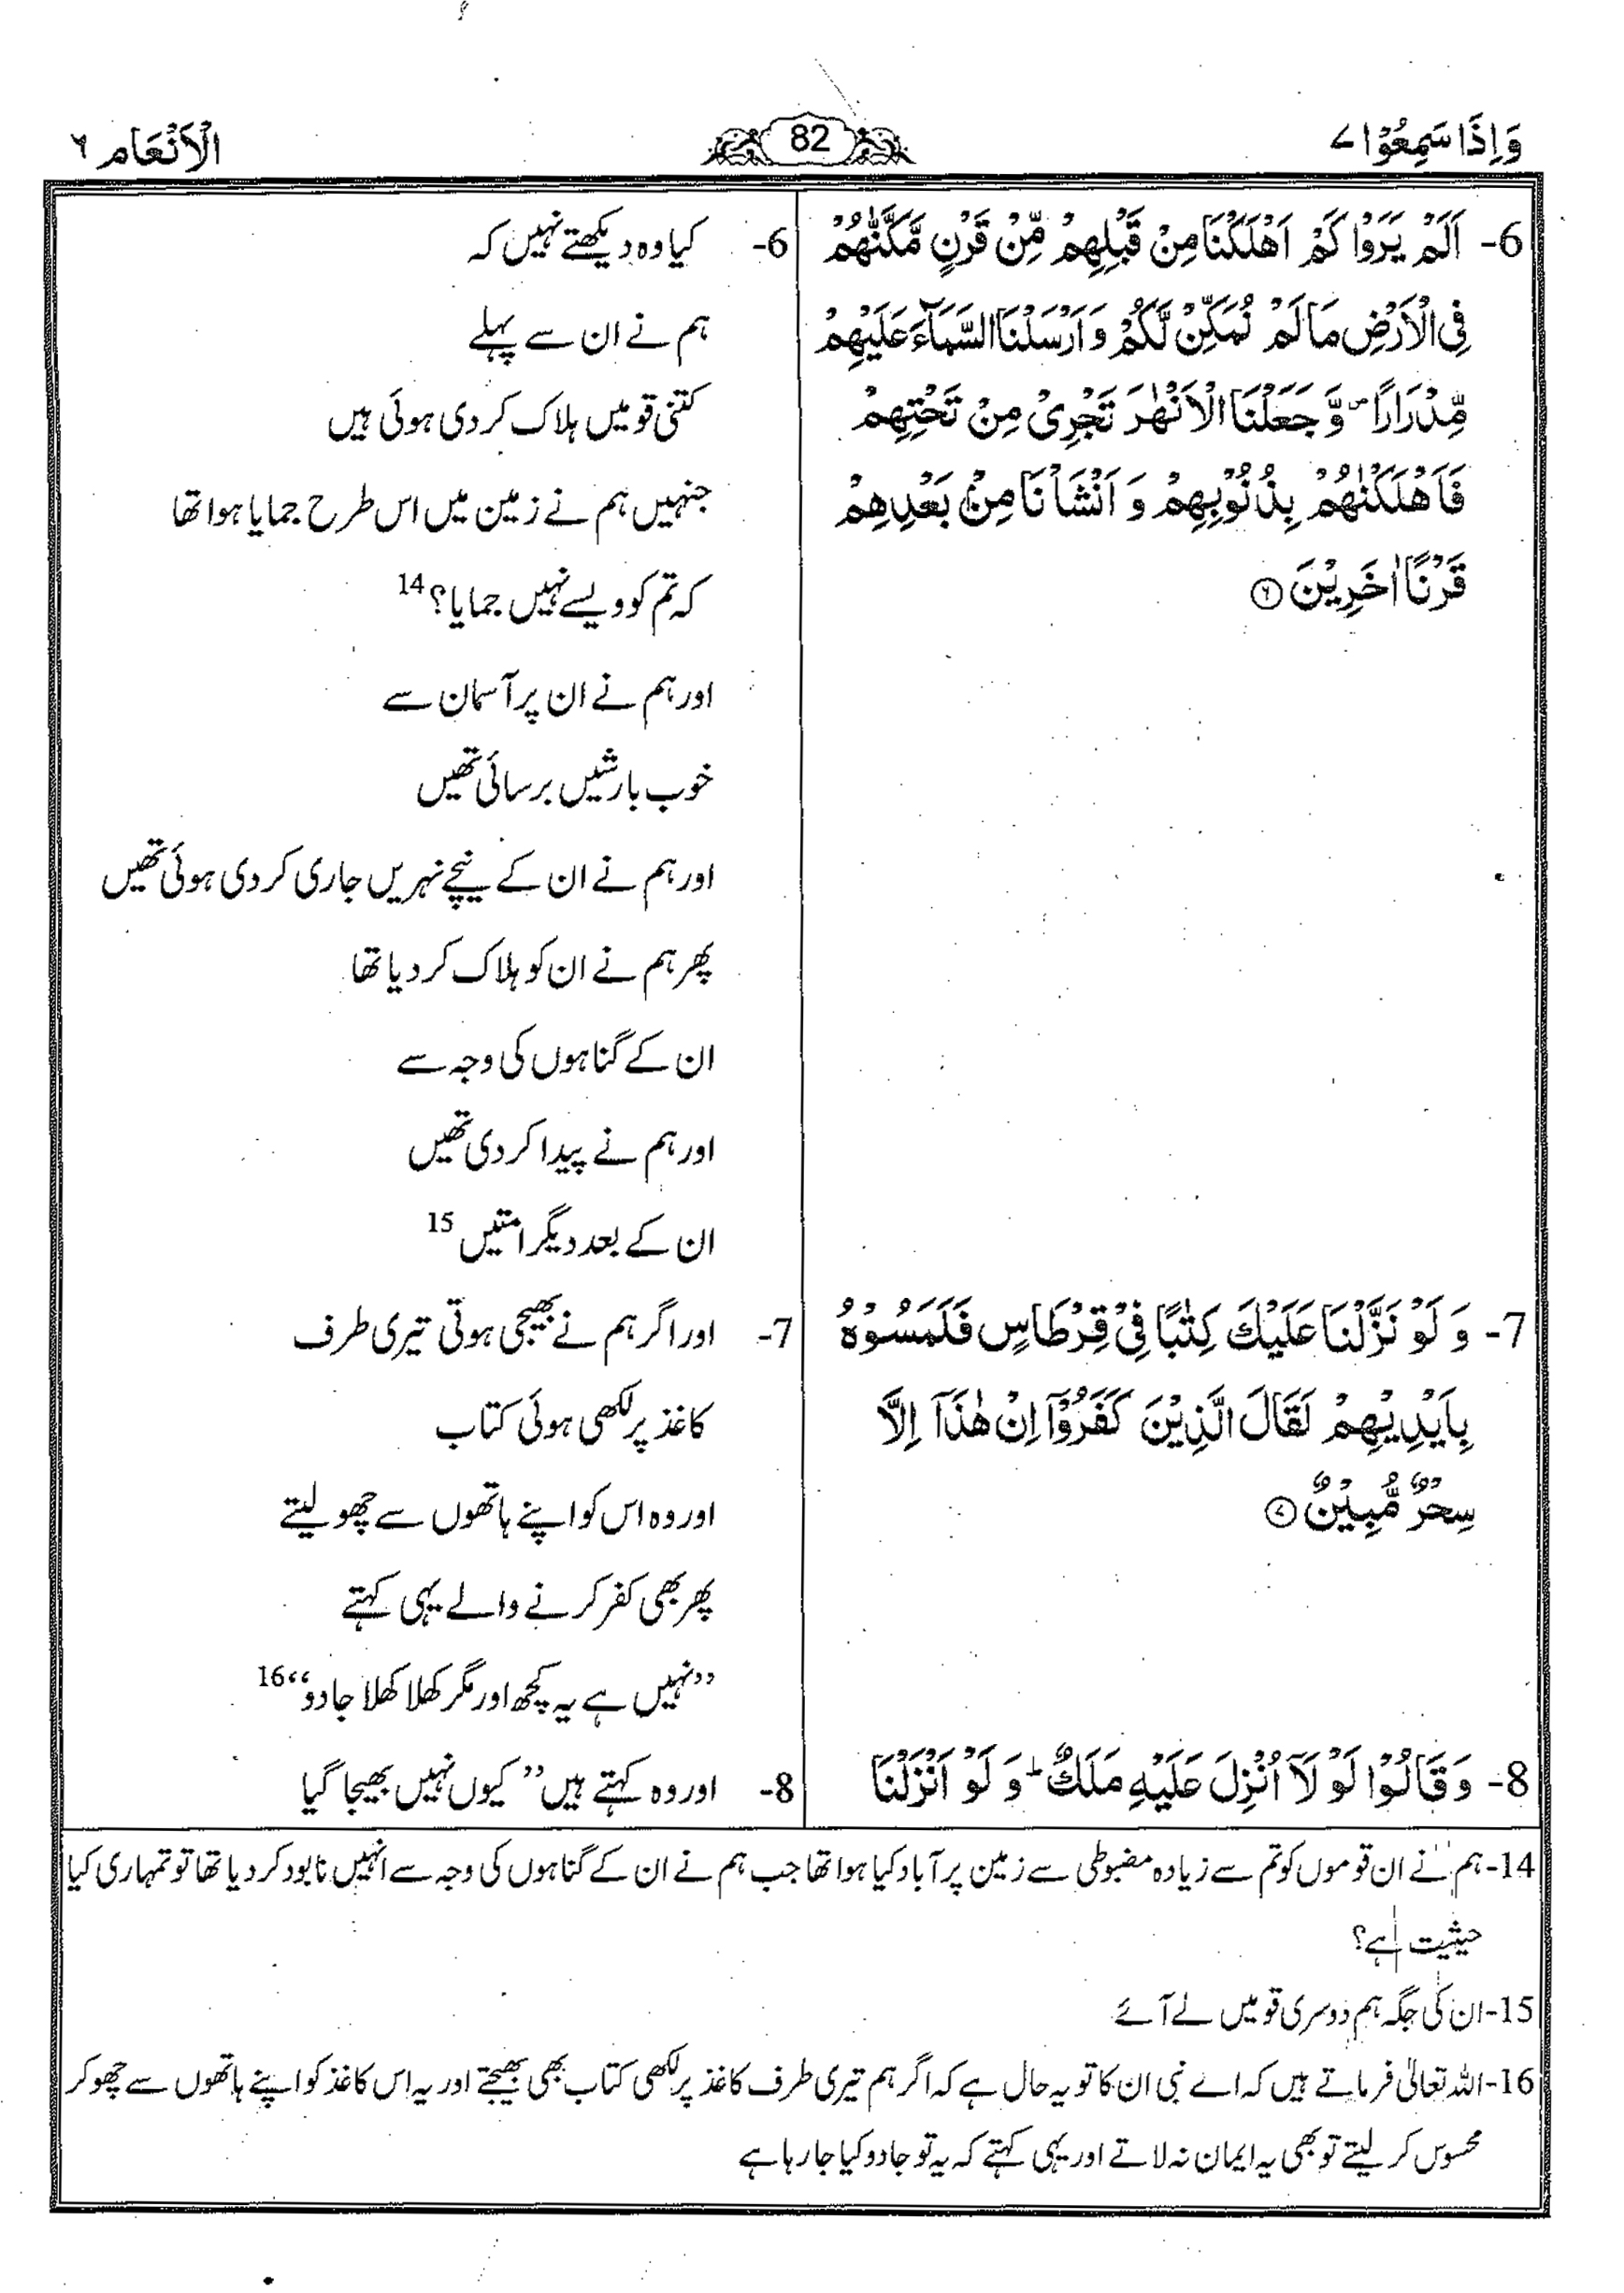 وَاِذَا سَمِعُوْا ۷
82
الْاَنْعَام ۶
6- اَلَمْ يَرَوْا كَمْ اَهْلَكْنَا مِنْ قَبْلِهِمْ مِّنْ قَرْنٍ مَّكَّنّٰهُمْ
فِى الْاَرْضِ مَا لَمْ نُمَكِّنْ لَّكُمْ وَ اَرْسَلْنَا السَّمَآءَ عَلَيْهِمْ
مِّدْرَارًا ۪ وَّ جَعَلْنَا الْاَنْهٰرَ تَجْرِىْ مِنْ تَحْتِهِمْ
فَاَهْلَكْنٰهُمْ بِذُنُوْبِهِمْ وَ اَنْشَاْنَا مِنْۢ بَعْدِهِمْ
قَرْنًا اٰخَرِيْنَ ۶
6- کیا وہ دیکھتے نہیں کہ
ہم نے ان سے پہلے
کتنی قومیں ہلاک کر دی ہوئی ہیں
جنہیں ہم نے زمین میں اس طرح جمایا ہوا تھا
کہ تم کو ویسے نہیں جمایا؟ 14
اور ہم نے ان پر آسمان سے
خوب بارشیں برسائی تھیں
اور ہم نے ان کے نیچے نہریں جاری کر دی ہوئی تھیں
پھر ہم نے ان کو ہلاک کر دیا تھا
ان کے گناہوں کی وجہ سے
اور ہم نے پیدا کر دی تھیں
ان کے بعد دیگر امتیں 15
7- وَ لَوْ نَزَّلْنَا عَلَيْكَ كِتٰبًا فِىْ قِرْطَاسٍ فَلَمَسُوْهُ
بِاَيْدِيْهِمْ لَقَالَ الَّذِيْنَ كَفَرُوْۤا اِنْ هٰذَاۤ اِلَّا
سِحْرٌ مُّبِيْنٌ ۷
7- اور اگر ہم نے بھیجی ہوتی تیری طرف
کاغذ پر لکھی ہوئی کتاب
اور وہ اس کو اپنے ہاتھوں سے چھو لیتے
پھر بھی کفر کرنے والے یہی کہتے
”نہیں ہے یہ کچھ اور مگر کھلا کھلا جادو“ 16
8- وَ قَالُوْا لَوْ لَاۤ اُنْزِلَ عَلَيْهِ مَلَكٌ ؕ وَ لَوْ اَنْزَلْنَا
8- اور وہ کہتے ہیں ”کیوں نہیں بھیجا گیا
14- ہم نے ان قوموں کو تم سے زیادہ مضبوطی سے زمین پر آباد کیا ہوا تھا جب ہم نے ان کے گناہوں کی وجہ سے انہیں نابود کر دیا تھا تو تمہاری کیا
حیثیت ہے؟
15- ان کی جگہ ہم دوسری قومیں لے آئے
16- اللہ تعالیٰ فرماتے ہیں کہ اے نبی ان کا تو یہ حال ہے کہ اگر ہم تیری طرف کاغذ پر لکھی کتاب بھی بھیجتے اور یہ اس کاغذ کو اپنے ہاتھوں سے چھو کر
محسوس کر لیتے تو بھی یہ ایمان نہ لاتے اور یہی کہتے کہ یہ تو جادو کیا جا رہا ہے